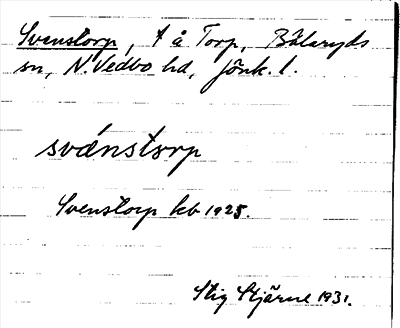 Svenstorp, t å Torp, Bälaryds
sn, N. Vedbo hd, Jönk. l.
svä́nstorp
Svenstorp kb 1925.
Stig Stjärne 1931.